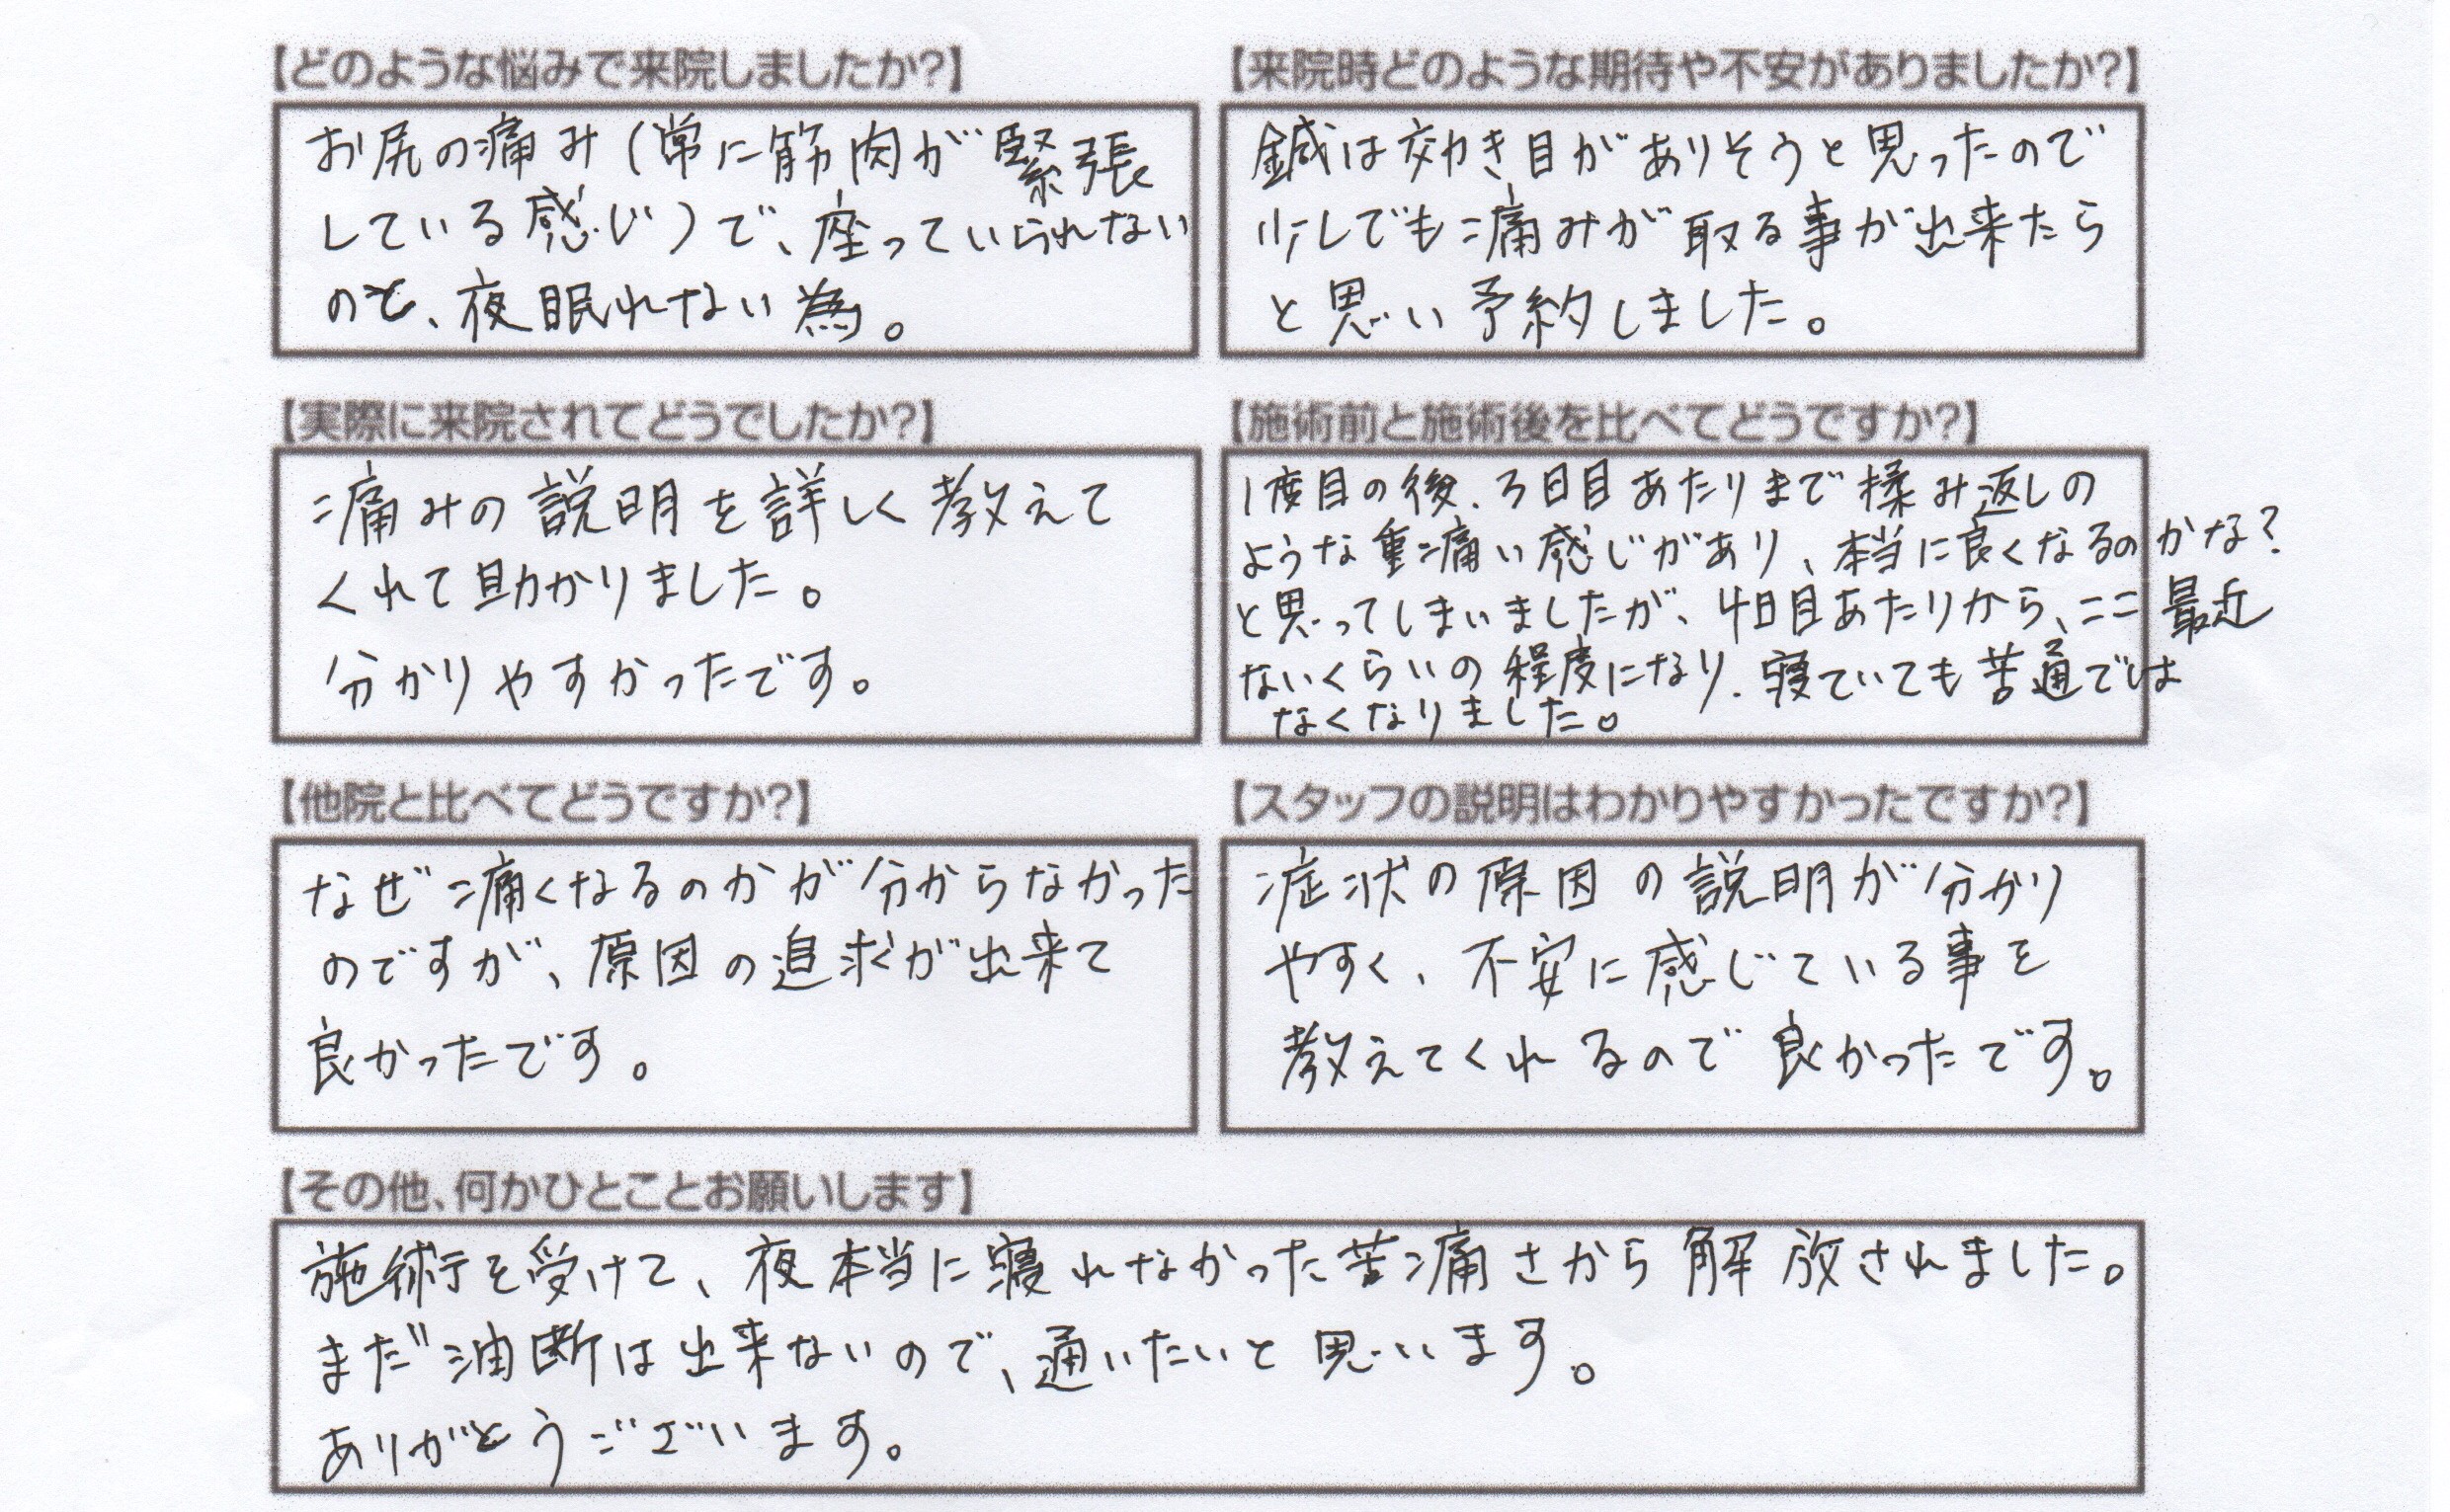 【どのような悩みで来院しましたか?】
お尻の痛み(常に筋肉が緊張
している感じ)で、座っていられない
のと、夜眠れない為。
【来院時どのような期待や不安がありましたか?】
鍼は効き目がありそうと思ったので
少しでも痛みが取る事が出来たら
と思い予約しました。
【実際に来院されてどうでしたか?】
痛みの説明を詳しく教えて
くれて助かりました。
分かりやすかったです。
【施術前と施術後を比べてどうですか?】
1度目の後、3日目あたりまで揉み返しの
ような重痛い感じがあり、本当に良くなるのかな?
と思ってしまいましたが、4日目あたりから、ここ最近
ないくらいの程度になり、寝ていても苦通では
なくなりました。
【他院と比べてどうですか?】
なぜ痛くなるのかが分からなかった
のですが、原因の追求が出来て
良かったです。
【スタッフの説明はわかりやすかったですか?】
症状の原因の説明が分かり
やすく、不安に感じている事を
教えてくれるので良かったです。
【その他、何かひとことお願いします】
施術を受けて、夜本当に寝れなかった苦痛さから解放されました。
まだ油断は出来ないので、通いたいと思います。
ありがとうございます。